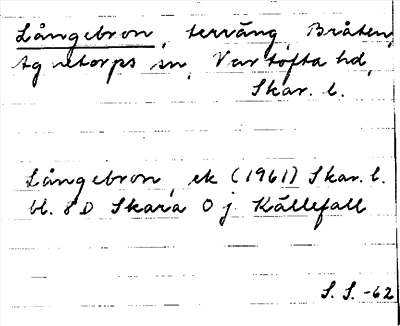 Långebron, terräng, Bråten,
Agnetorps sn, Vartofta hd,
Skar. l.
Långebron, ek (1961) Skar. l.
bl. 8 D Skara 0 j Källefall
S. S. -62